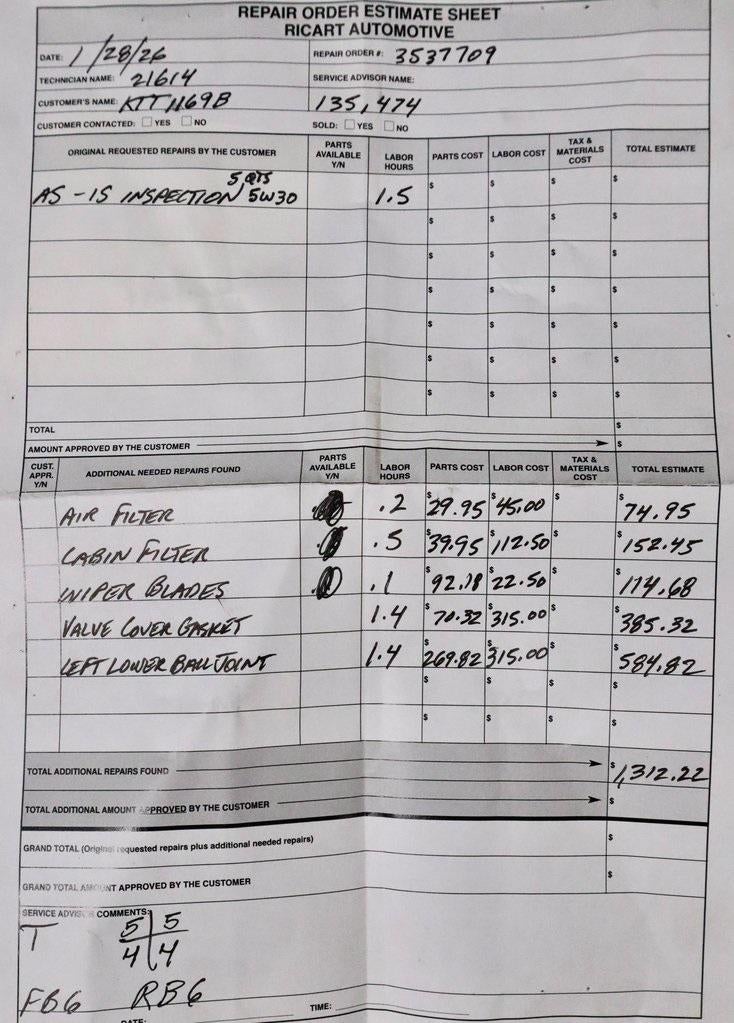 REPAIR ORDER ESTIMATE SHEET
RICART AUTOMOTIVE
DATE: 1/28/26 REPAIR ORDER #: 3537709
TECHNICIAN NAME: 21614 SERVICE ADVISOR NAME:
CUSTOMER'S NAME: KTT1169B 135,474
CUSTOMER CONTACTED: YES NO SOLD: YES NO
ORIGINAL REQUESTED REPAIRS BY THE CUSTOMER PARTS AVAILABLE Y/N LABOR HOURS PARTS COST LABOR COST TAX & MATERIALS COST TOTAL ESTIMATE
5 QTS
AS-IS INSPECTION 5W30 1.5 $ $ $ $
$ $ $ $
$ $ $ $
$ $ $ $
$ $ $ $
$ $ $ $
$ $ $ $
TOTAL $
AMOUNT APPROVED BY THE CUSTOMER $
CUST. APPR. Y/N ADDITIONAL NEEDED REPAIRS FOUND PARTS AVAILABLE Y/N LABOR HOURS PARTS COST LABOR COST TAX & MATERIALS COST TOTAL ESTIMATE
AIR FILTER .2 $29.95 $45.00 $ $74.95
CABIN FILTER .5 $39.95 $112.50 $ $152.45
WIPER BLADES .1 $92.18 $22.50 $ $114.68
VALVE COVER GASKET 1.4 $70.32 $315.00 $ $385.32
LEFT LOWER BALL JOINT 1.4 $269.82 $315.00 $ $584.82
$ $ $ $
$ $ $ $
TOTAL ADDITIONAL REPAIRS FOUND $1,312.22
TOTAL ADDITIONAL AMOUNT APPROVED BY THE CUSTOMER $
GRAND TOTAL (Original requested repairs plus additional needed repairs) $
GRAND TOTAL AMOUNT APPROVED BY THE CUSTOMER $
SERVICE ADVISOR COMMENTS:
T 5 5
4 4
FB6 RB6
DATE: TIME: